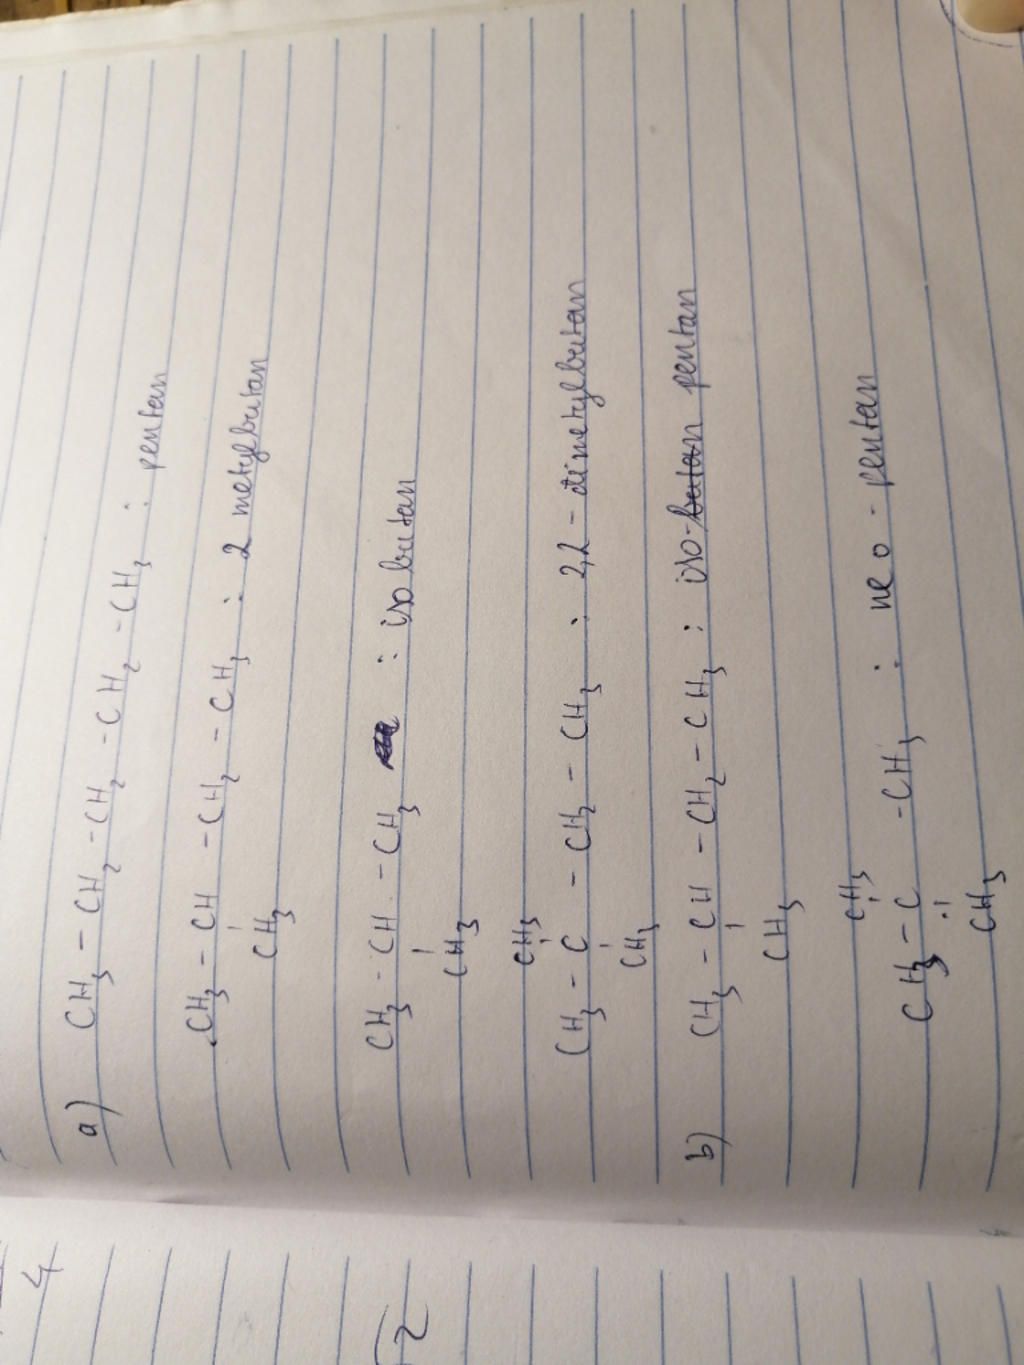 a) CH₃ - CH₂ - CH₂ - CH₂ - CH₃ : pentan
CH₃ - CH - CH₂ - CH₃ : 2 metylbutan
CH₃
CH₃ - CH - CH₃ : isobutan
CH₃
CH₃
CH₃ - C - CH₂ - CH₃ : 2,2 - dimetylbutan
CH₃
b) CH₃ - CH - CH₂ - CH₃ : iso-butan pentan
CH₃
CH₃
CH₃ - C - CH₃ : neo - pentan
CH₃
4
2